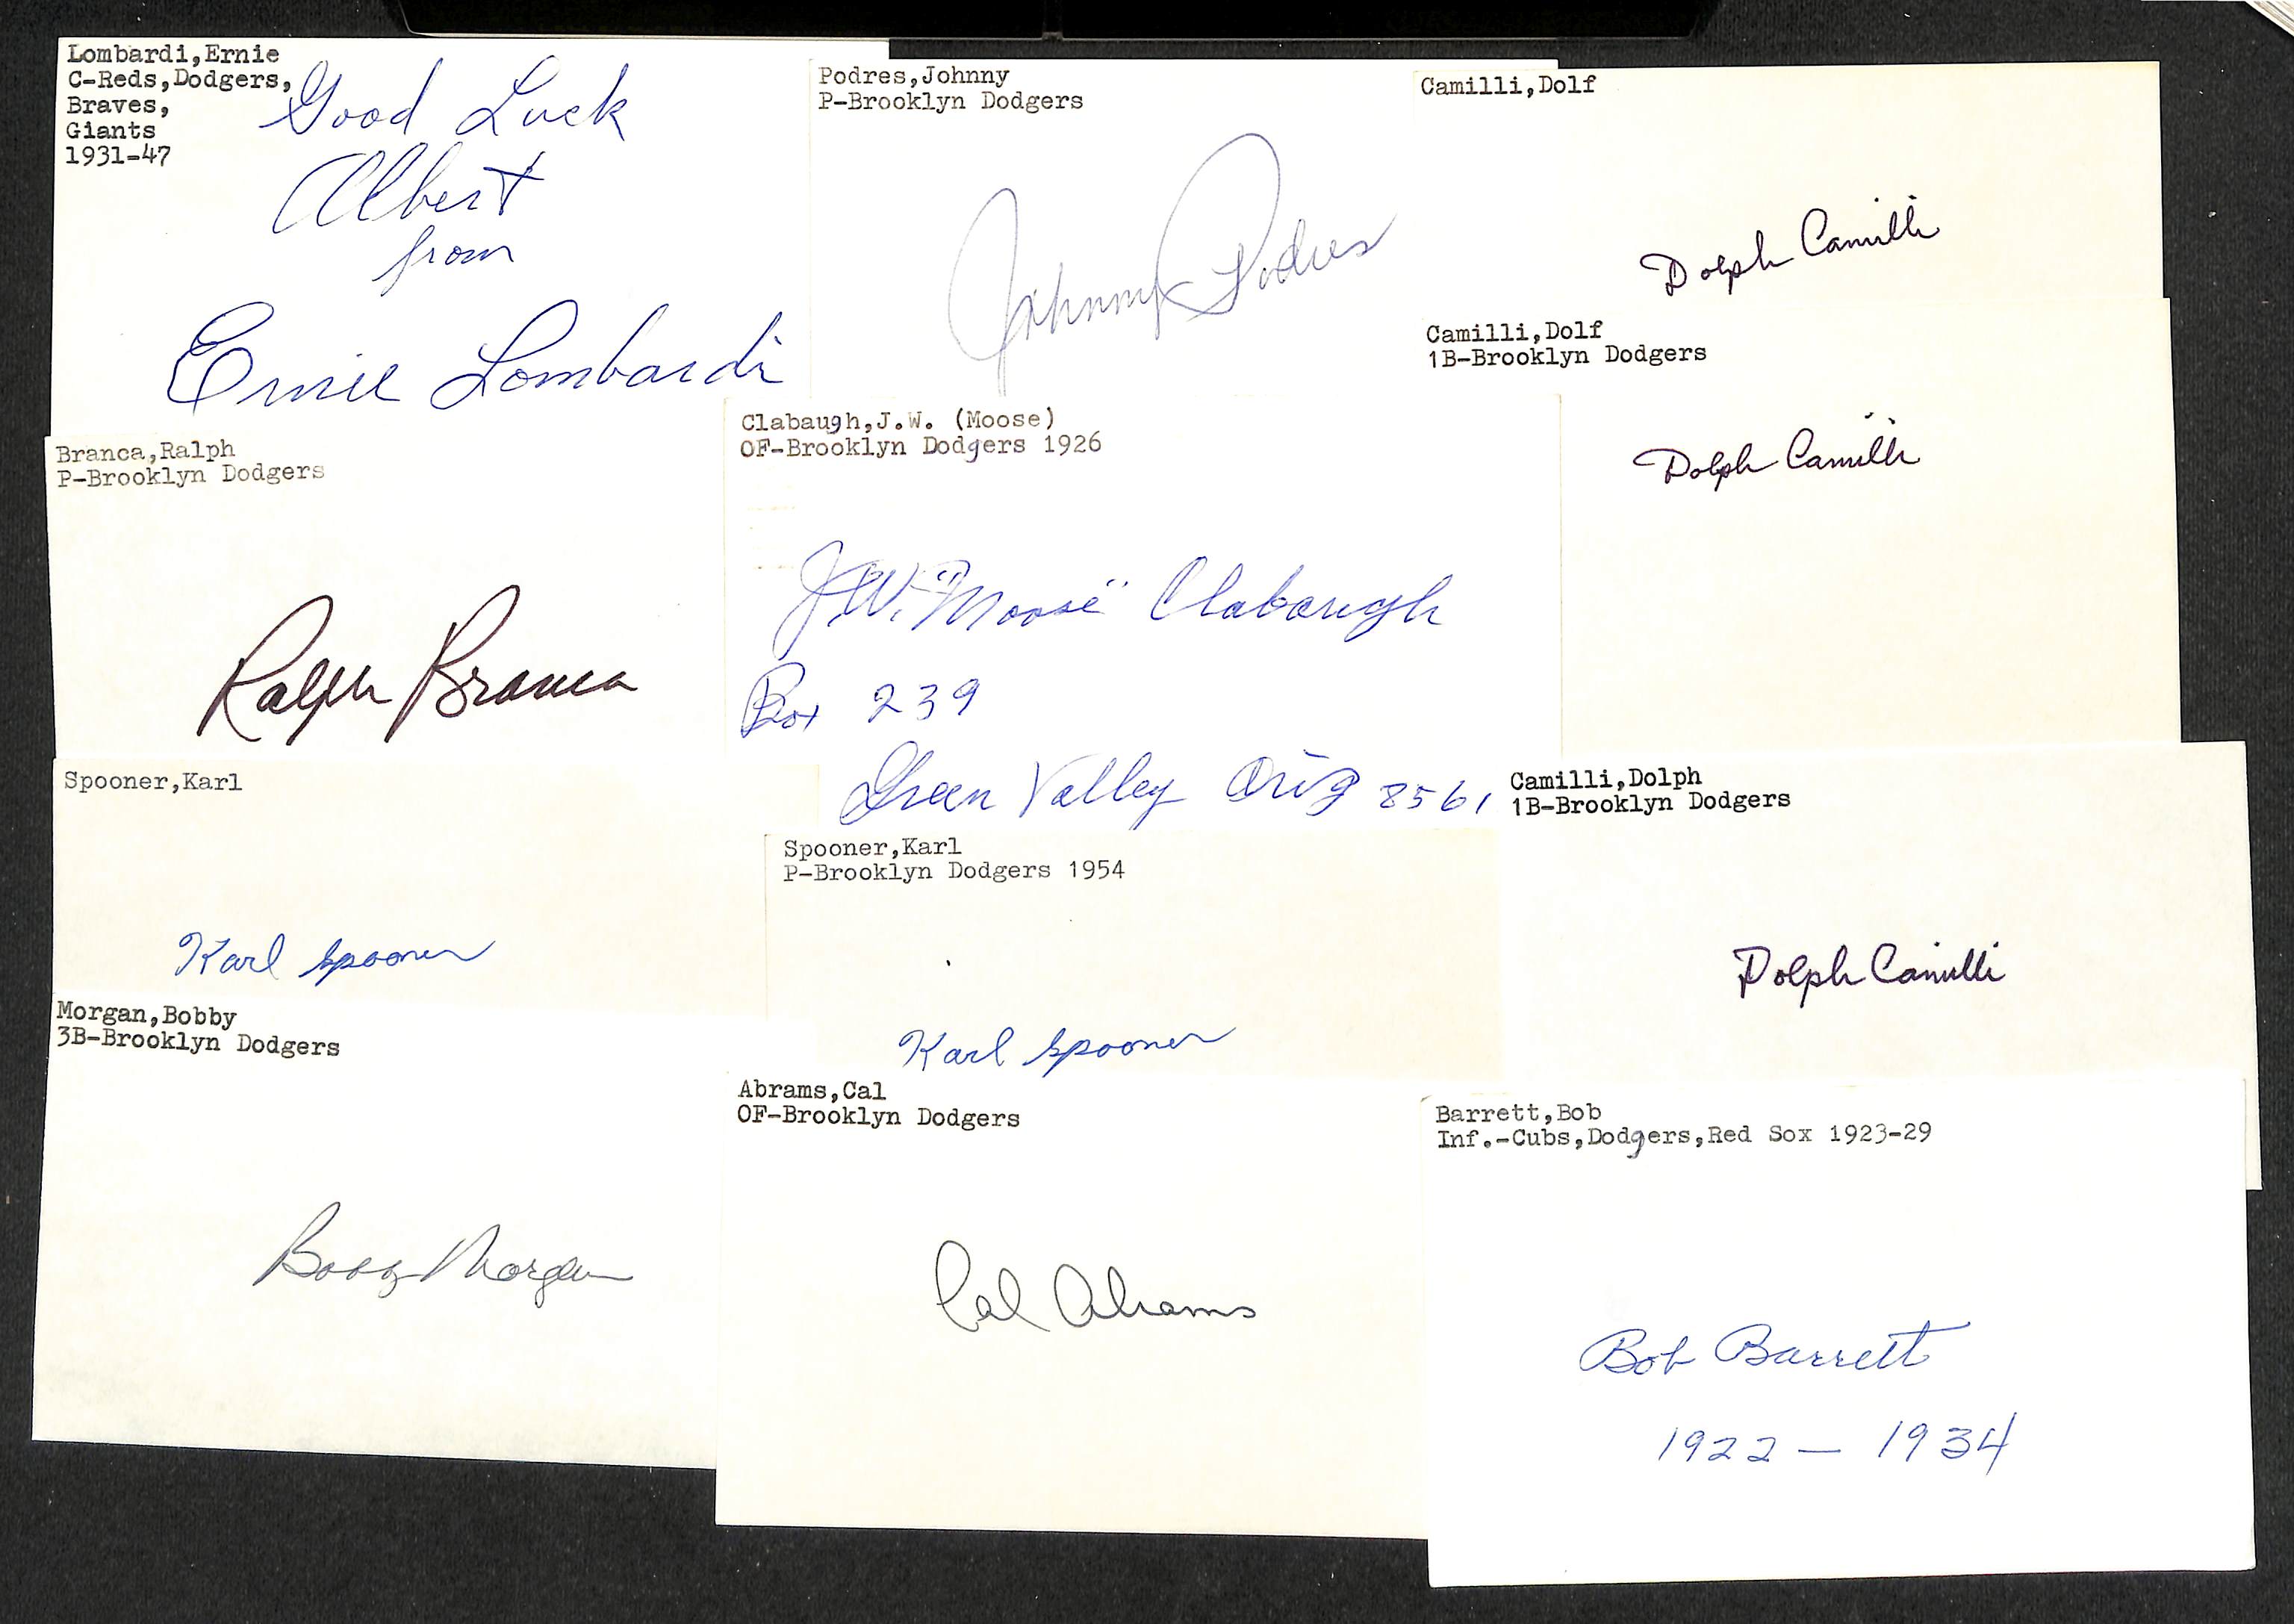 Lombardi,Ernie
C-Reds,Dodgers,
Braves,
Giants
1931-47
Good Luck
Albert
from
Ernie Lombardi
Podres,Johnny
P-Brooklyn Dodgers
Johnny Podres
Camilli,Dolf
Dolph Camilli
Camilli,Dolf
1B-Brooklyn Dodgers
Dolph Camilli
Branca,Ralph
P-Brooklyn Dodgers
Ralph Branca
Clabaugh,J.W. (Moose)
OF-Brooklyn Dodgers 1926
J.W. "Moose" Clabaugh
Box 239
Green Valley Ariz 8561
Spooner,Karl
Karl Spooner
Spooner,Karl
P-Brooklyn Dodgers 1954
Karl Spooner
Camilli,Dolph
1B-Brooklyn Dodgers
Dolph Camilli
Morgan,Bobby
3B-Brooklyn Dodgers
Bobby Morgan
Abrams,Cal
OF-Brooklyn Dodgers
Cal Abrams
Barrett,Bob
Inf.-Cubs,Dodgers,Red Sox 1923-29
Bob Barrett
1922 — 1934